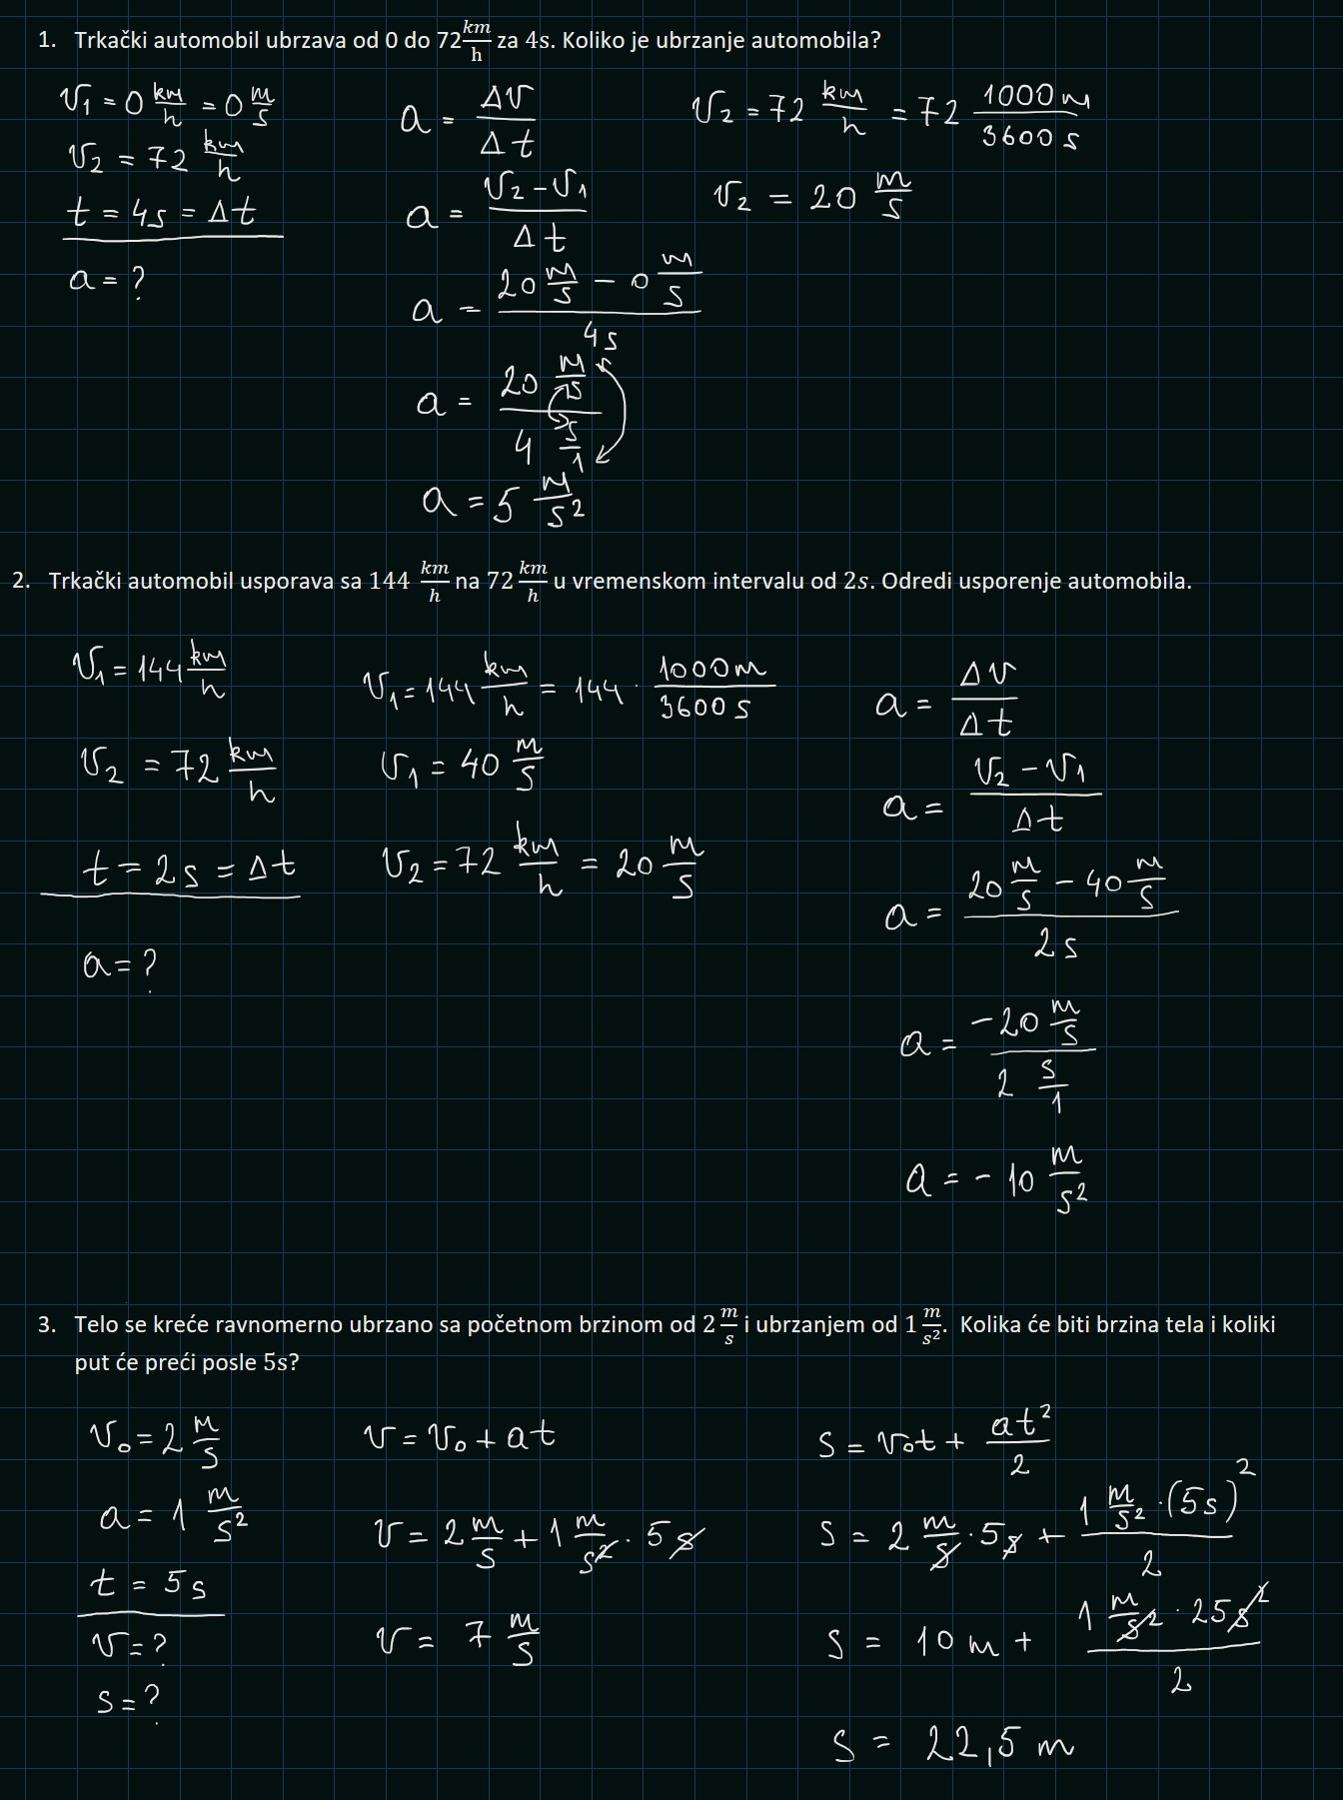 1. Trkački automobil ubrzava od 0 do 72 km/h za 4s. Koliko je ubrzanje automobila?
v₁ = 0 km/h = 0 m/s
v₂ = 72 km/h
t = 4s = Δt
a = ?
a = Δv/Δt
a = (v₂ - v₁)/Δt
a = (20 m/s - 0 m/s)/4s
a = (20 m/s)/(4 s/1)
a = 5 m/s²
v₂ = 72 km/h = 72 1000m/3600s
v₂ = 20 m/s
2. Trkački automobil usporava sa 144 km/h na 72 km/h u vremenskom intervalu od 2s. Odredi usporenje automobila.
v₁ = 144 km/h
v₂ = 72 km/h
t = 2s = Δt
a = ?
v₁ = 144 km/h = 144 · 1000m/3600s
v₁ = 40 m/s
v₂ = 72 km/h = 20 m/s
a = Δv/Δt
a = (v₂ - v₁)/Δt
a = (20 m/s - 40 m/s)/2s
a = (-20 m/s)/(2 s/1)
a = -10 m/s²
3. Telo se kreće ravnomerno ubrzano sa početnom brzinom od 2 m/s i ubrzanjem od 1 m/s². Kolika će biti brzina tela i koliki
put će preći posle 5s?
v₀ = 2 m/s
a = 1 m/s²
t = 5s
v = ?
s = ?
v = v₀ + at
v = 2 m/s + 1 m/s² · 5s
v = 7 m/s
s = v₀t + at²/2
s = 2 m/s · 5s + (1 m/s² · (5s)²)/2
s = 10m + (1 m/s² · 25s²)/2
s = 22,5 m